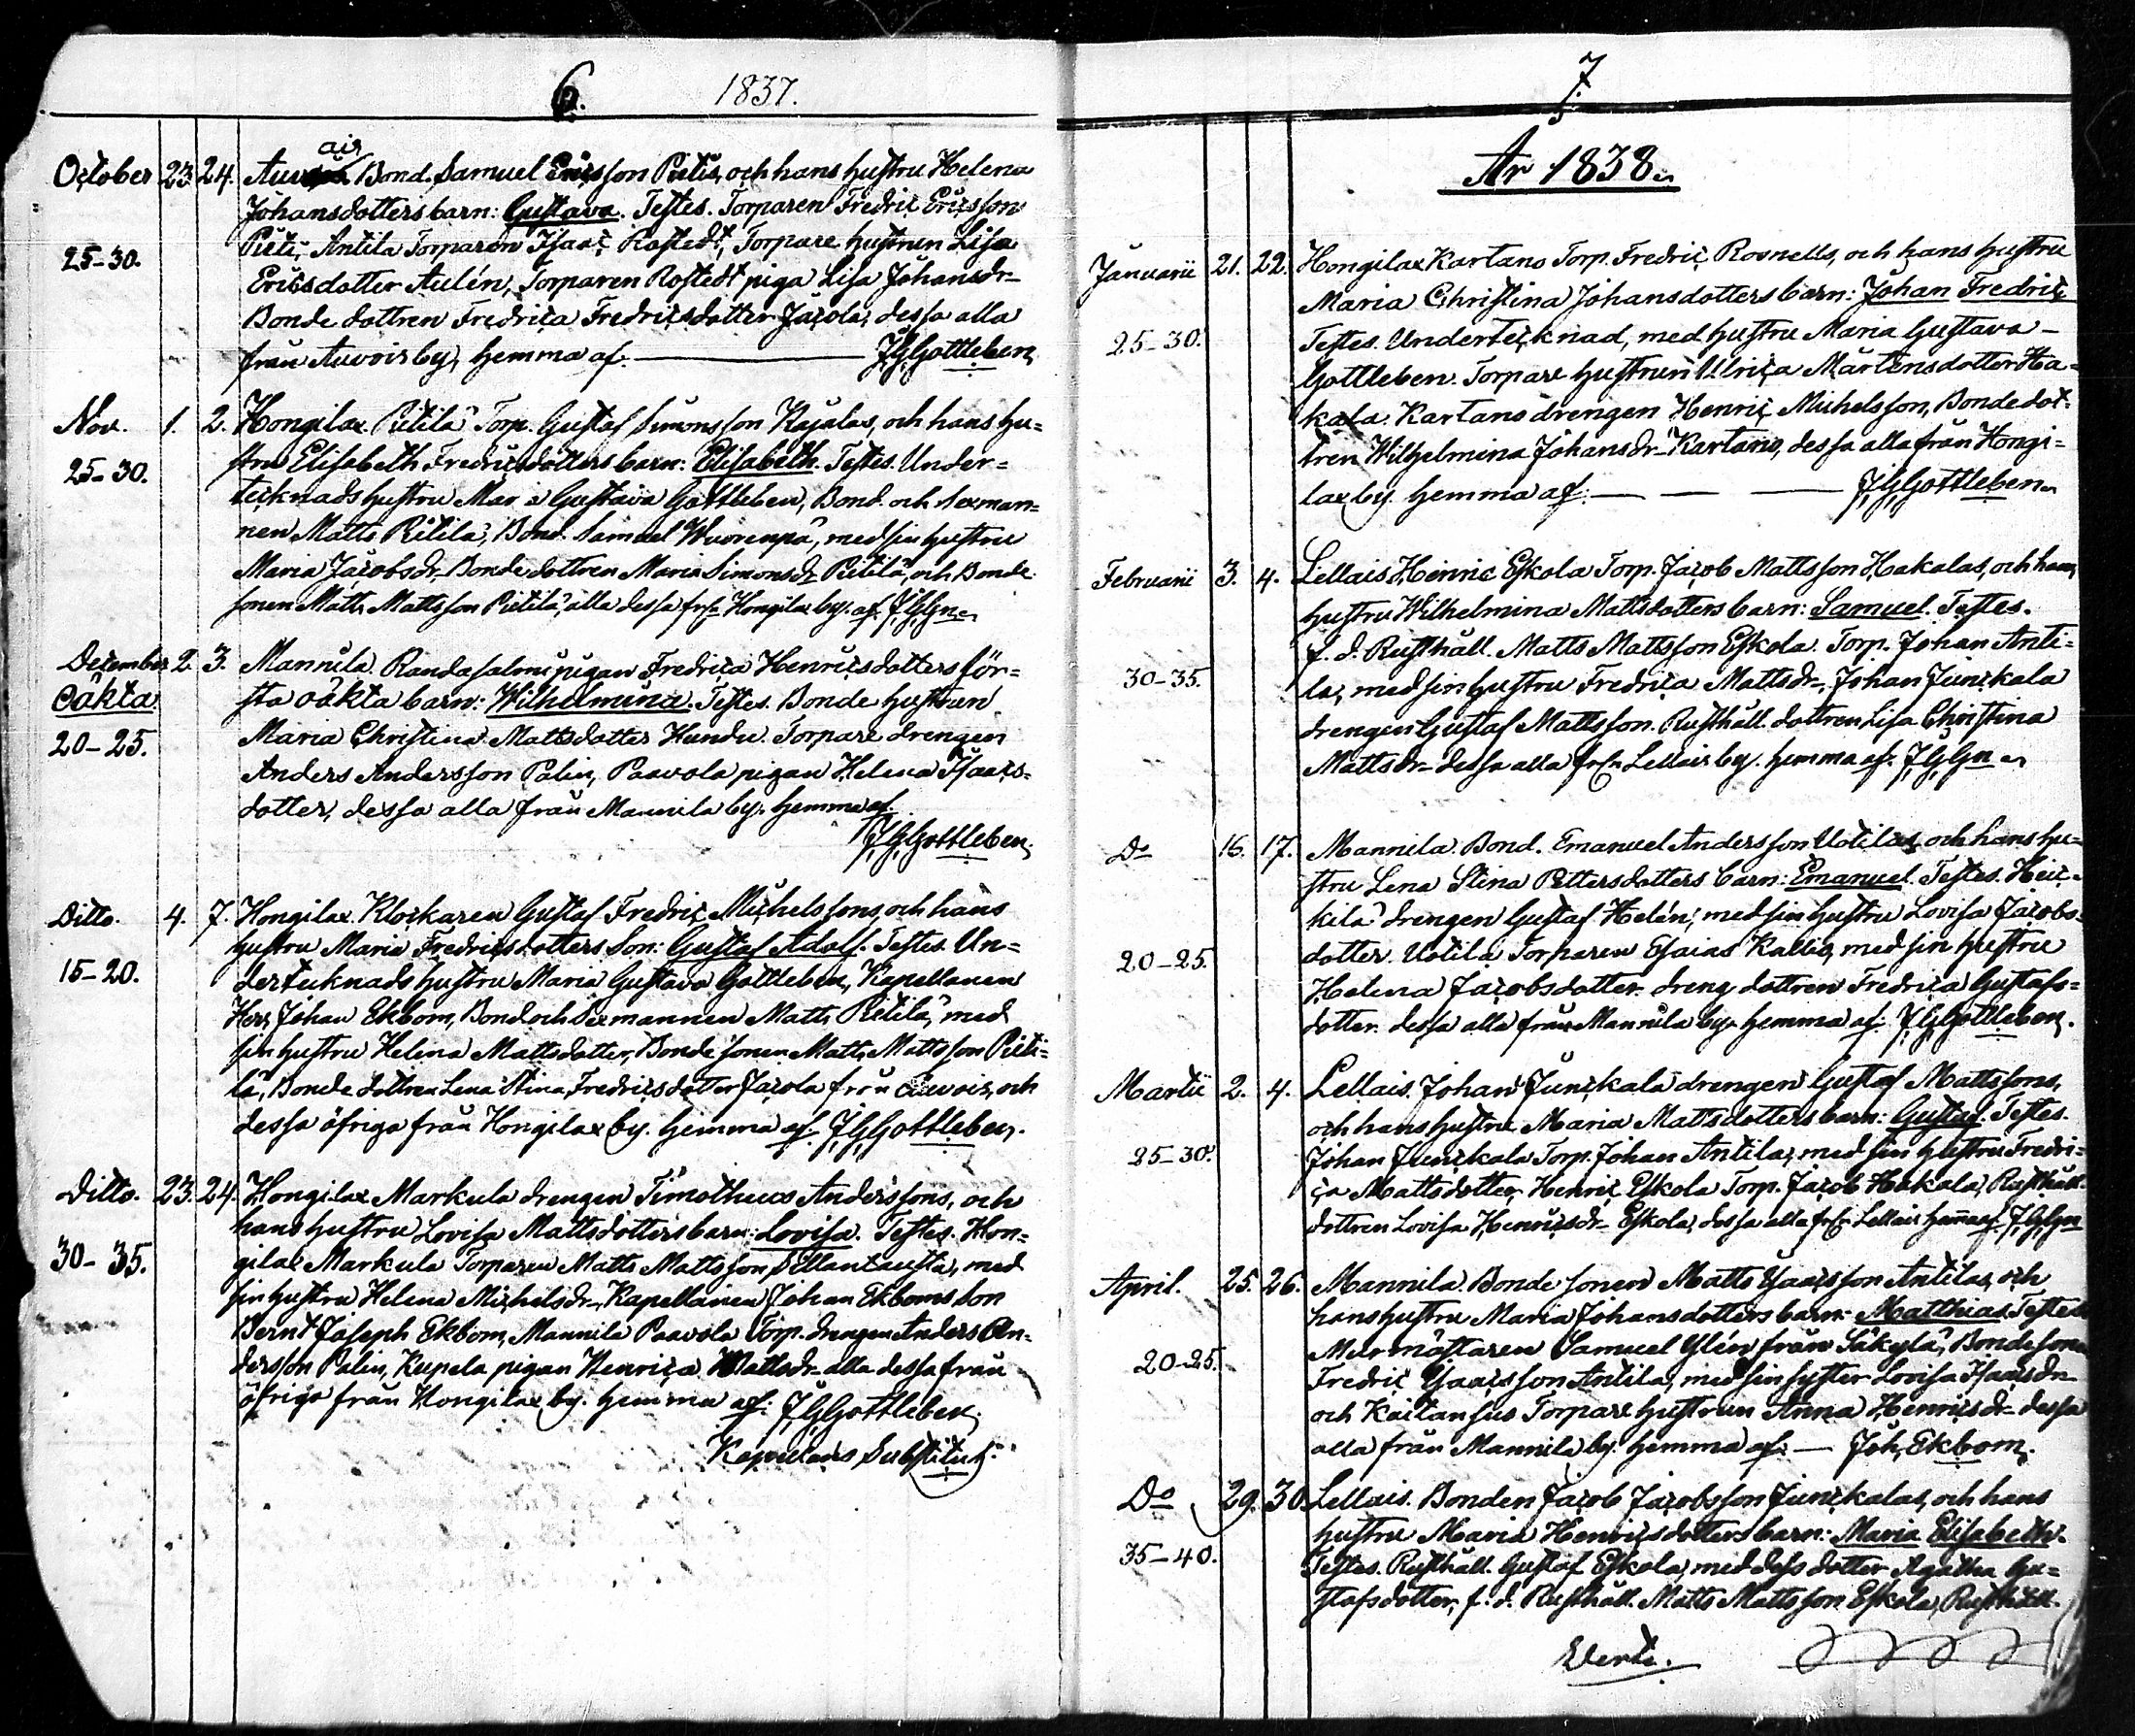 6. 1837.
October 23. 24. Auvois Bond. Samuel Ericsson Pietis, och hans hustru Helena
Johansdotters barn: Gustava. Testes. Torparen Fredric Ericsson
25-30. Pieti, Antila Torparen Isaac Rostedt, Torpare hustrun Lisa
Ericsdotter Aulén, Torparen Rostedt piga Lisa Johansdr
Bonde dottren Fredrica Fredricsdotter Jacola, dessa alla
från Auvois by, hemma af. — JGGottleben
Nov. 1. 2. Hongilax Pitilä Torp. Gustaf Simonsson Kajalas, och hans hu=
25-30. stru Elisabeth Fredricsdotters barn: Elisabeth. Testes. Under=
tecknads hustru Maria Gustava Gottleben, Bond. och Sexman=
nen Matts Pitilä, Bond. Samuel Wuorenpä, med sin hustru
Maria Jacobsdr. Bonde dottren Maria Simonsdr Pitilä, och Bonde
sonen Matts Mattsson Pietilä, alla dessa från Hongilax by. af. JGGn
December 2. 3. Mannila. Randasalmi pigan Fredrica Henricsdotters för=
Oäkta sta oäkta barn: Wilhelmina. Testes. Bonde hustrun
20-25. Maria Christina Mattsdotter Hundu. Torpare drengen
Anders Andersson Palin, Paavola pigan Helena Isaacs=
dotter, dessa alla från Mannila by. hemma af.
JGGottleben.
Ditto. 4. 7. Hongilax Klockaren Gustaf Fredric Michelssons, och hans
hustru Maria Fredricsdotters Son: Gustaf Adolf. Testes. Un=
15-20. dertecknads hustru Maria Gustava Gottleben, Kapellanen
Herr Johan Ekbom, Bond och Sexmannen Matts Pitilä, med
sin hustru Helena Mattsdotter, Bonde sonen Matts Mattsson Pieti=
lä, Bonde dottren Lena Stina Fredricsdotter Jacola från Auvois, och
dessa öfriga från Hongilax by. hemma af. JGGottleben.
Ditto. 23. 24. Hongilax Markula drengen Timotheus Anderssons, och
hans hustru Lovisa Mattsdotters barn: Lovisa. Testes. Hon=
30-35. gilax Markula Torparen Matts Mattsson Sillantausta, med
sin hustru Helena Michelsdr, Kapellanen Johan Ekboms Son
Bernt Joseph Ekbom, Mannila Paavola Torp. drengen Anders An=
dersson Palin, Kupela pigan Henrica Mattsdr. alla dessa från
öfriga från Hongilax by. hemma af: JGGottleben.
Kapellans Substitut.
7.
År 1838.
Januarii 21. 22. Hongilax Kartano Torp. Fredric Rosnells, och hans hustru
Maria Christina Johansdotters barn: Johan Fredric
25-30. Testes. Undertecknad, med hustru Maria Gustava
Gottleben. Torpare hustrun Ulrica Mårtensdotter Ha=
kala. Kartano drengen Henric Michelsson, Bonde dot=
tren Wilhelmina Johansdr. Kartano, dessa alla från Hongi=
lax by. hemma af. — JGGottleben.
Februarii 3. 4. Lellais Heinric Eskola Torp. Jacob Mattsson Hakalas, och hans
hustru Wilhelmina Mattsdotters barn: Samuel. Testes.
f. d. Rusthåll. Matts Mattsson Eskola. Torp. Johan Anti=
30-35. la, med sin hustru Fredrica Mattsdr. Johan Junckala
drengen Gustaf Mattsson. Rusthåll. dottren Lisa Christina
Mattsdr. dessa alla från Lellais by. hemma af. JGGn
Do 16. 17. Mannila. Bond. Emanuel Andersson Uotilas, och hans hu=
stru Lena Stina Pettersdotters barn: Emanuel. Testes. Heic=
kilä drengen Gustaf Helén, med sin hustru Lovisa Jacobs=
20-25. dotter. Uotila Torparen Esaias Kallio, med sin hustru
Helena Jacobsdotter. dreng dottren Fredrica Gustafs=
dotter. dessa alla från Mannila by. hemma af. JGGottleben.
Martii 2. 4. Lellais. Johan Junckala drengen Gustaf Mattssons,
och hans hustru Maria Mattsdotters barn: Gustaf. Testes.
25-30. Johan Junckala Torp. Johan Antila, med sin hustru Fredri=
ca Mattsdotter, Henric Eskola Torp. Jacob Hakala, Rusthåll.
dottren Lovisa Henricsdr. Eskola, dessa alla från Lellais hemma af JGGn
April. 25. 26. Mannila. Bonde sonen Matts Isaacsson Antilas, och
hans hustru Maria Johansdotters barn: Matthias. Testes
20-25. Murmästaren Samuel Ylén från Säkylä, Bondesonen
Fredric Isaacsson Antila, med sin syster Lovisa Isaacsdr.
och Kaitansus Torpare hustrun Anna Henricsdr. dessa
alla från Mannila by. hemma af. — Joh, Ekbom.
Do 29. 30. Lellais. Bonden Jacob Jacobsson Junckalas, och hans
hustru Maria Henricsdotters barn: Maria Elisabeth.
35-40. Testes. Rusthåll. Gustaf Eskola, med dess dotter Agatha Gu=
stafsdotter, f. d. Rusthåll. Matts Mattsson Eskola, Rusthåll.
Verte.